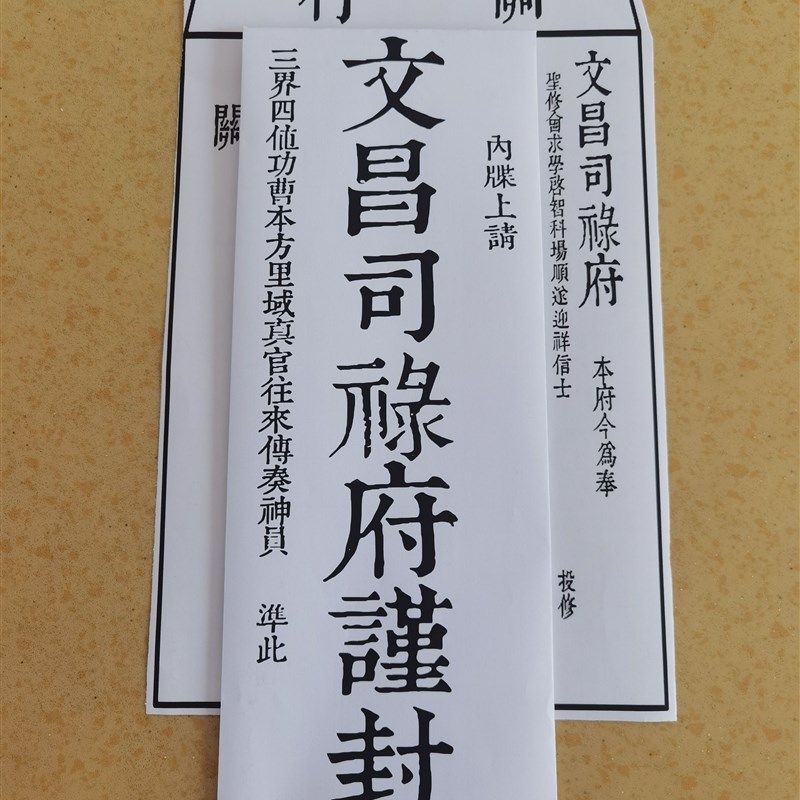 文昌司祿府
本府今為奉
聖修會求學啓智科場順遂迎祥信士
投修
內牒上請
文昌司祿府謹封
三界四值功曹本方里域真官往來傳奏神員 準此
關